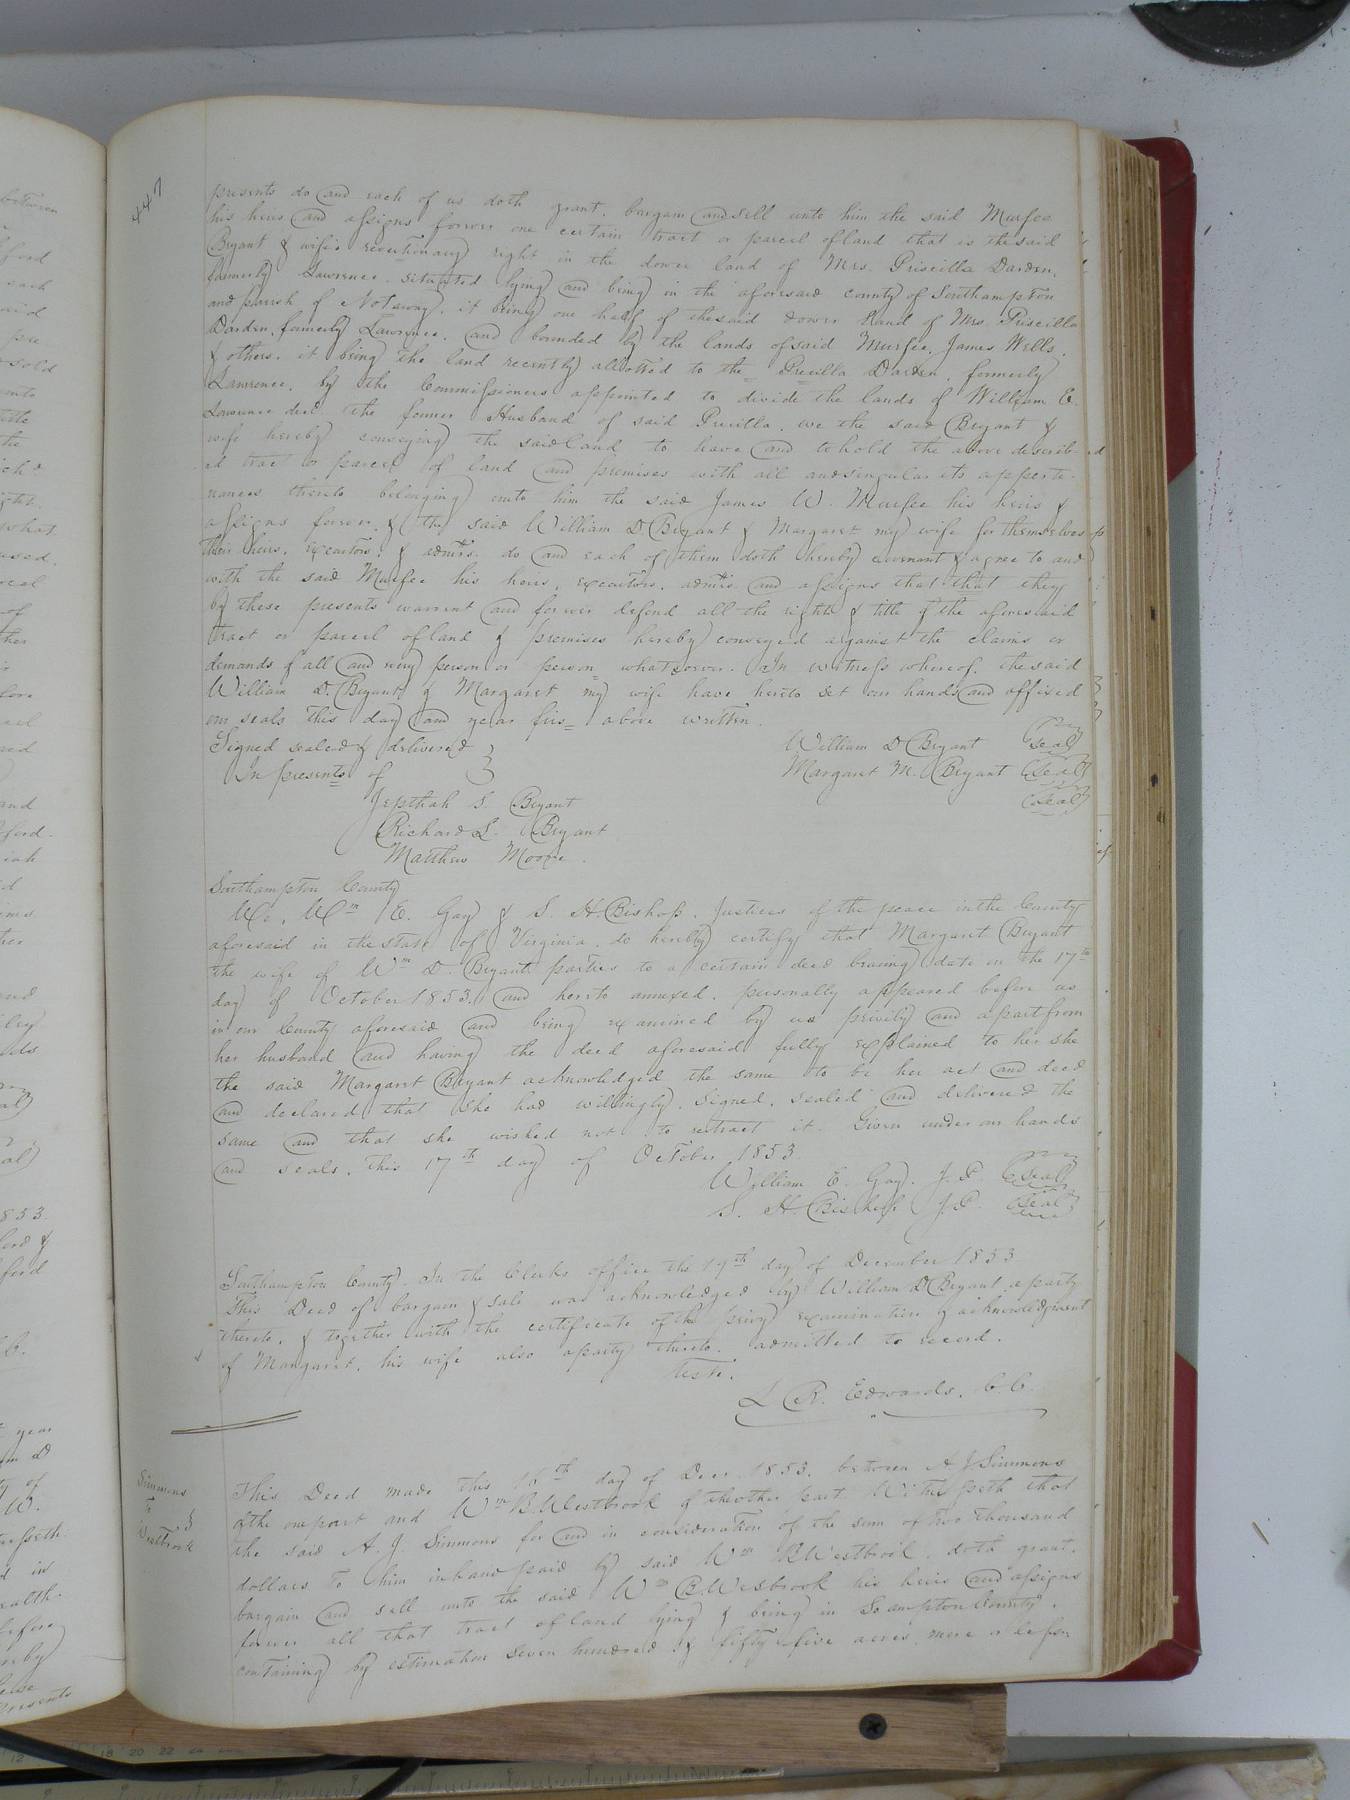 447
presents do and each of us doth grant, bargain and sell unto him the said Murfee
his heirs and assigns forever one certain tract or parcel of land that is the said
Bryant & wife's revertionary right in the dower land of Mrs. Priscilla Darden,
formerly Lawrence. situated lying and being in the aforesaid county of Southampton
and parish of Notoway, it being one half of the said dower land of Mrs. Priscilla
Darden, formerly Lawrence, and bounded by the lands of said Murfee, James Wells,
& others. it being the land recently allotted to the Priscilla Darden, formerly
Lawrence, by the Commissioners appointed to divide the lands of William E.
Lawrence decd. the former Husband of said Priscilla. we the said Bryant &
wife hereby conveying the said land to have and to hold the above describ-
ed tract or parcel of land and premises with all and singular its apperte-
nances thereto belonging unto him the said James W. Murfee his heirs &
assigns forever & the said William D Bryant & Margaret my wife for themselves
their heirs, executors, & admrs. do and each of them doth hereby covenant & agree to and
with the said Murfee his heirs, executors, admrs. and assigns that that they
by these presents warrent and forever defend all the right & title of the aforesaid
tract or parcel of land & premises hereby conveyed against the claims or
demands of all and every person or person whatsoever. In witness whereof, the said
William D. Bryant & Margaret my wife have hereto set our hands and affixed
our seals this day and year firs above written.
Signed sealed & delivered
In presents of
William D Bryant (Seal)
Margaret M. Bryant (Seal)
(Seal)
Jepthah S. Bryant
Richard L. Bryant
Matthew Moore.
Southampton County
We, Wm. E. Gay & S. H. Bishop. Justices of the peace in the County
aforesaid in the state of Virginia, do hereby certify that Margaret Bryant
the wife of Wm D. Bryant parties to a certain deed bearing date on the 17th
day of October 1853, and hereto annexed, personally appeared before us
in our County aforesaid and being examined by us privily and apart from
her husband and having the deed aforesaid fully explained to her she
the said Margaret Bryant acknowledged the same to be her act and deed
and declared that she had willingly, signed, sealed and delivered the
same and that she wished not to retract it. Given under our hands
and seals, this 17th day of October 1853.
William E. Gay. J.P. (Seal)
S. H. Bishop J.P. (Seal)
Southampton County. In the Clerks office the 19th day of December 1853
This Deed of bargain & sale was acknowledged by William D Bryant, a party
thereto, & together with the certificate of the privy examination & acknowledgment
of Margaret, his wife also a party thereto. admitted to record.
Teste.
L R. Edwards, C.C.
Simmons
To
Westbrook
This Deed made this 16th day of Decr. 1853, between A J Simmons
of the one part and Wm B. Westbrook of the other part Witnesseth that
the said A. J. Simmons for and in consideration of the sum of two thousand
dollars to him in hand paid by said Wm B. Westbrook. doth grant,
bargain and sell unto the said Wm B. Wesbrook his heirs and assigns
forever all that tract of land lying & being in So ampton County,
containing by estimation seven hundred & fifty five acres, more or less,